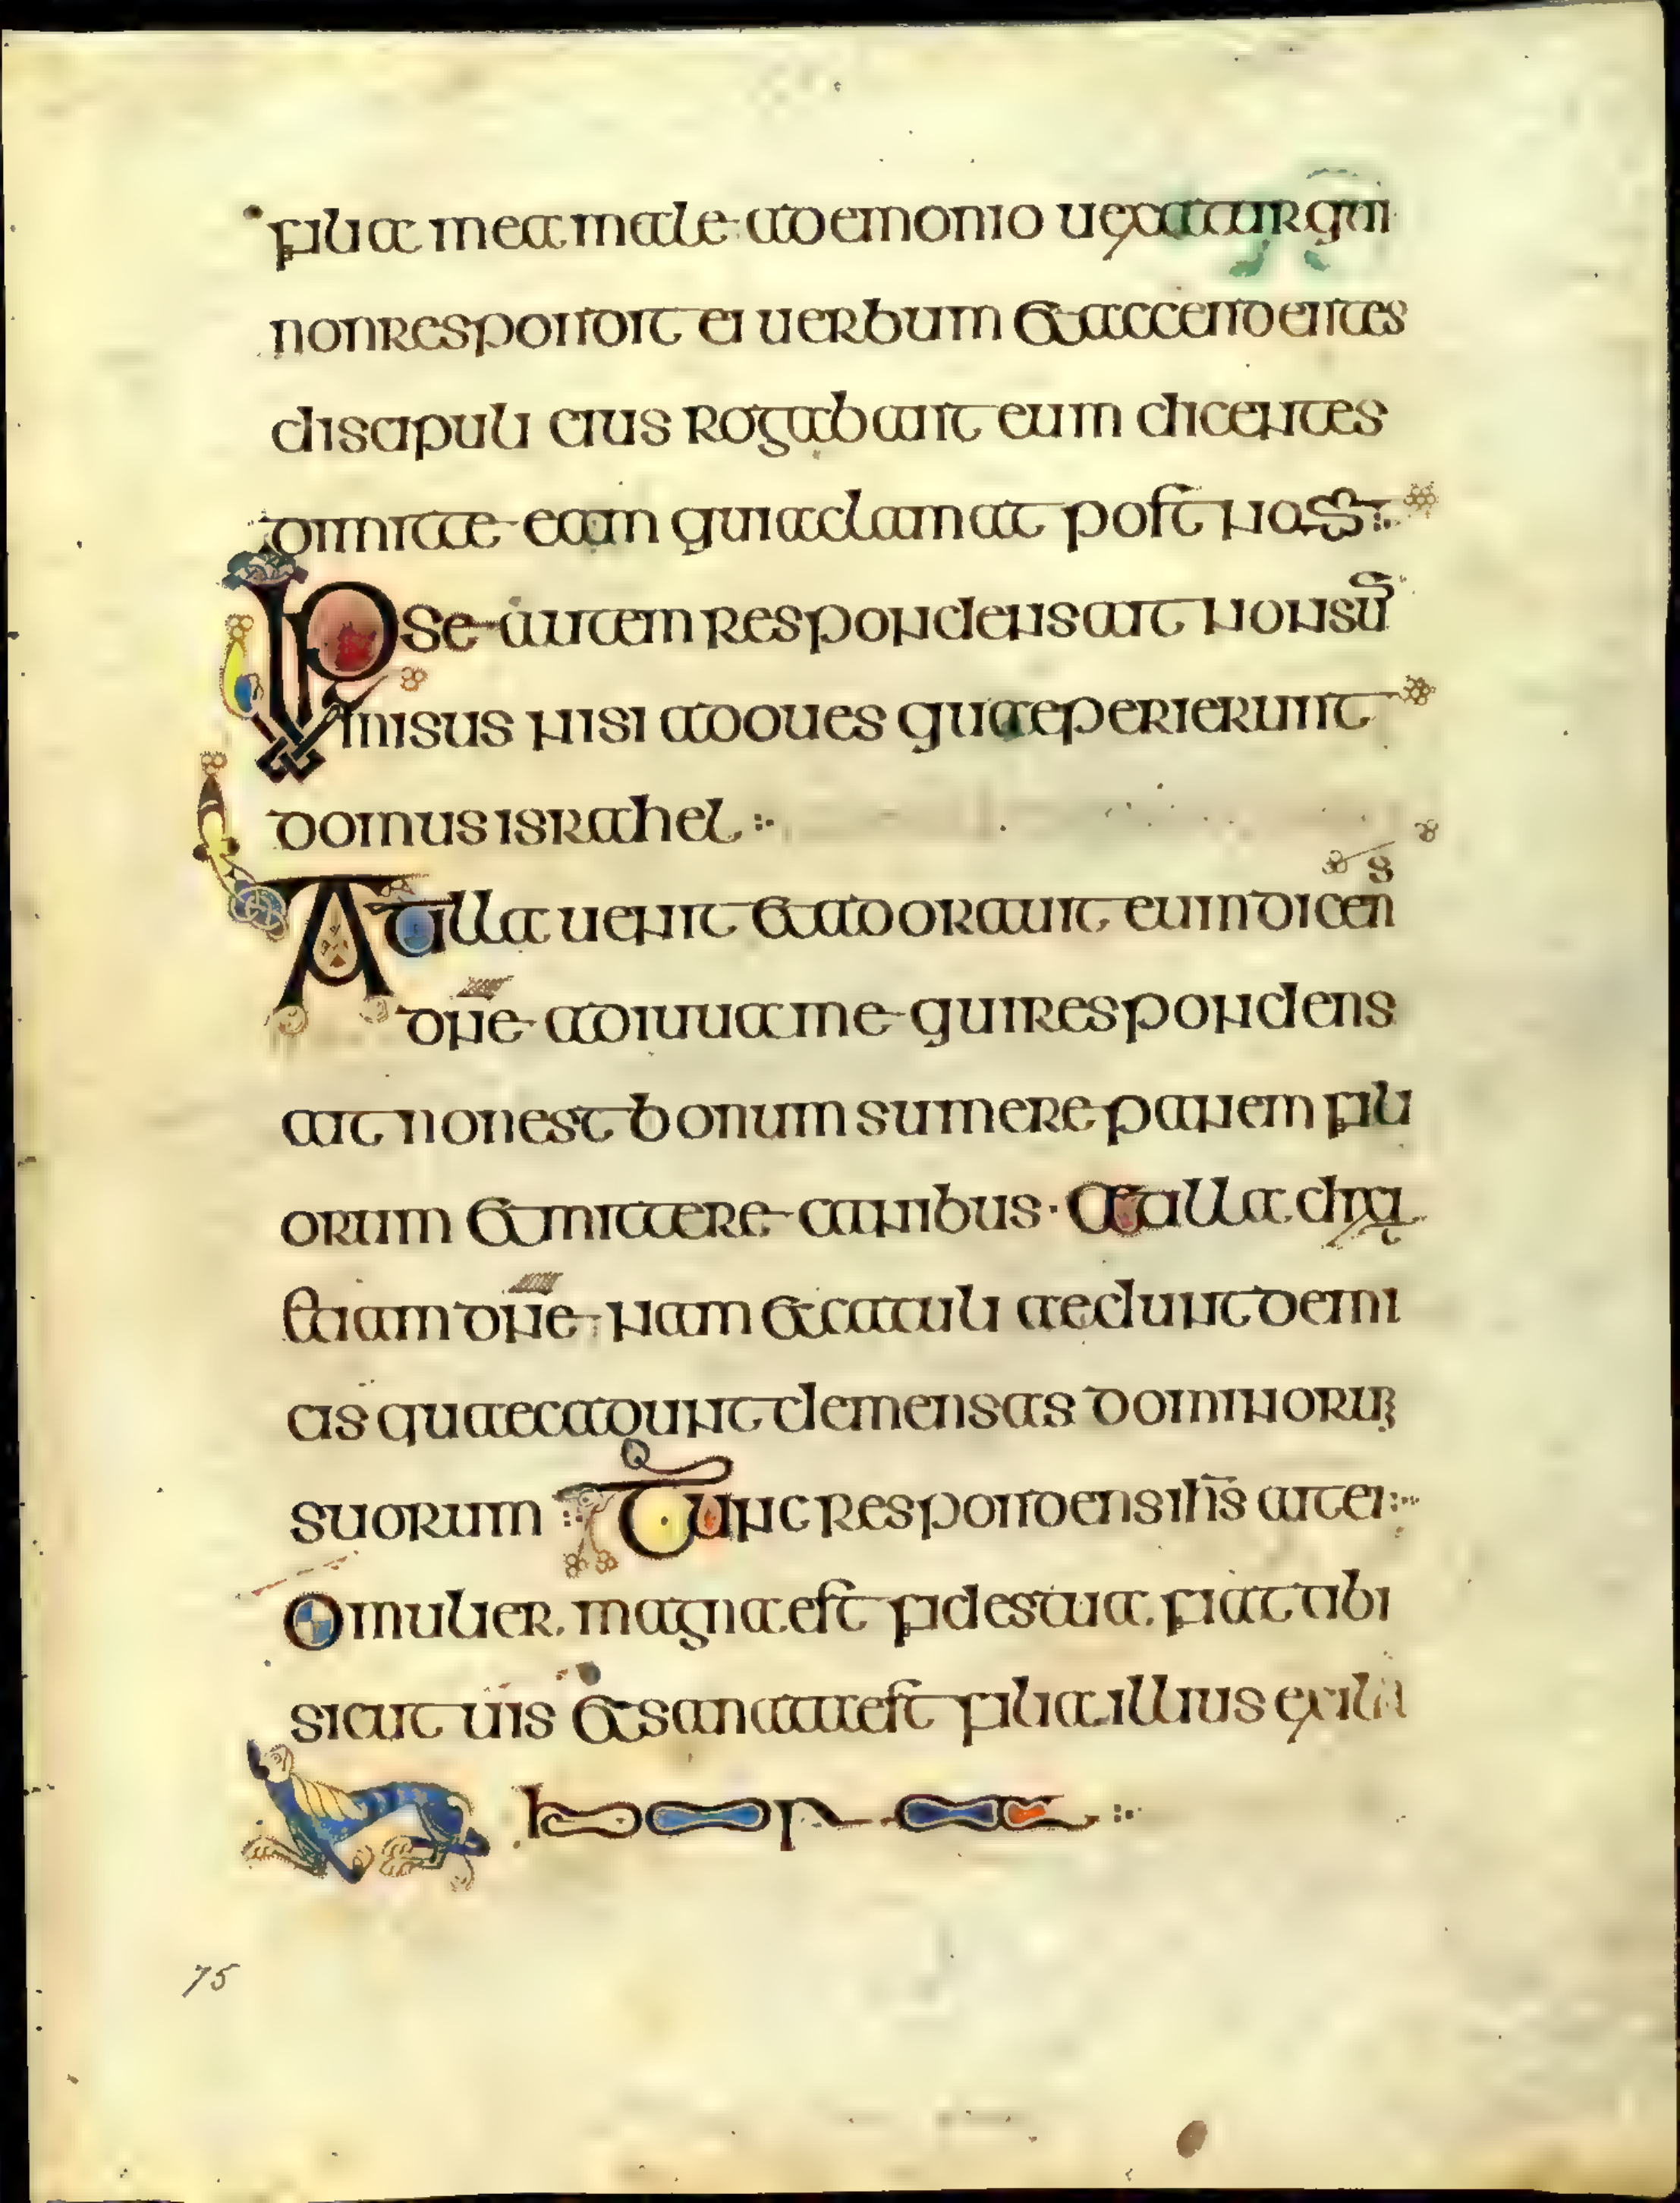 filia mea male ademonio uexatur qui
nonrespondit ei uerbum & accendentes
discipuli eius rogabant eum dicentes
dimitte eam quia clamat post nos
Ipse autem respondens ait non sū
misus nisi ad oues quae perierunt
domus israhel
At illa uenit & adorauit eum dicens
dn̄e adiuua me qui respondens
ait non est bonum sumere panem fili
orum & mittere canibus · At illa dixit
Etiam dn̄e nam & catuli aedunt de mi
cis quae cadunt de mensas dominorum
suorum Tunc respondens ih̄s ait ei
O mulier magna est fides tua fiat tibi
sicut uis & sanata est filia illius ex illa
hora
75